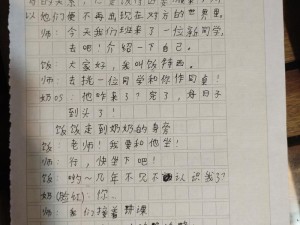 以他们便不再出现在对方的世界里。
师：今天我们班来了一位新同学，
去吧！介绍一下自己。
饭：大家好，我叫饭
师：去挑一位同学和你作同桌！
奶OS：他咋来了？完了，每日子
到头了！
饭饭走到奶奶的身旁
饭：老师！我要和他坐！
师：行，快坐下吧！
饭：哟～几年不见不认识我了？
奶（脸红）：你..
师：我们接着讲课